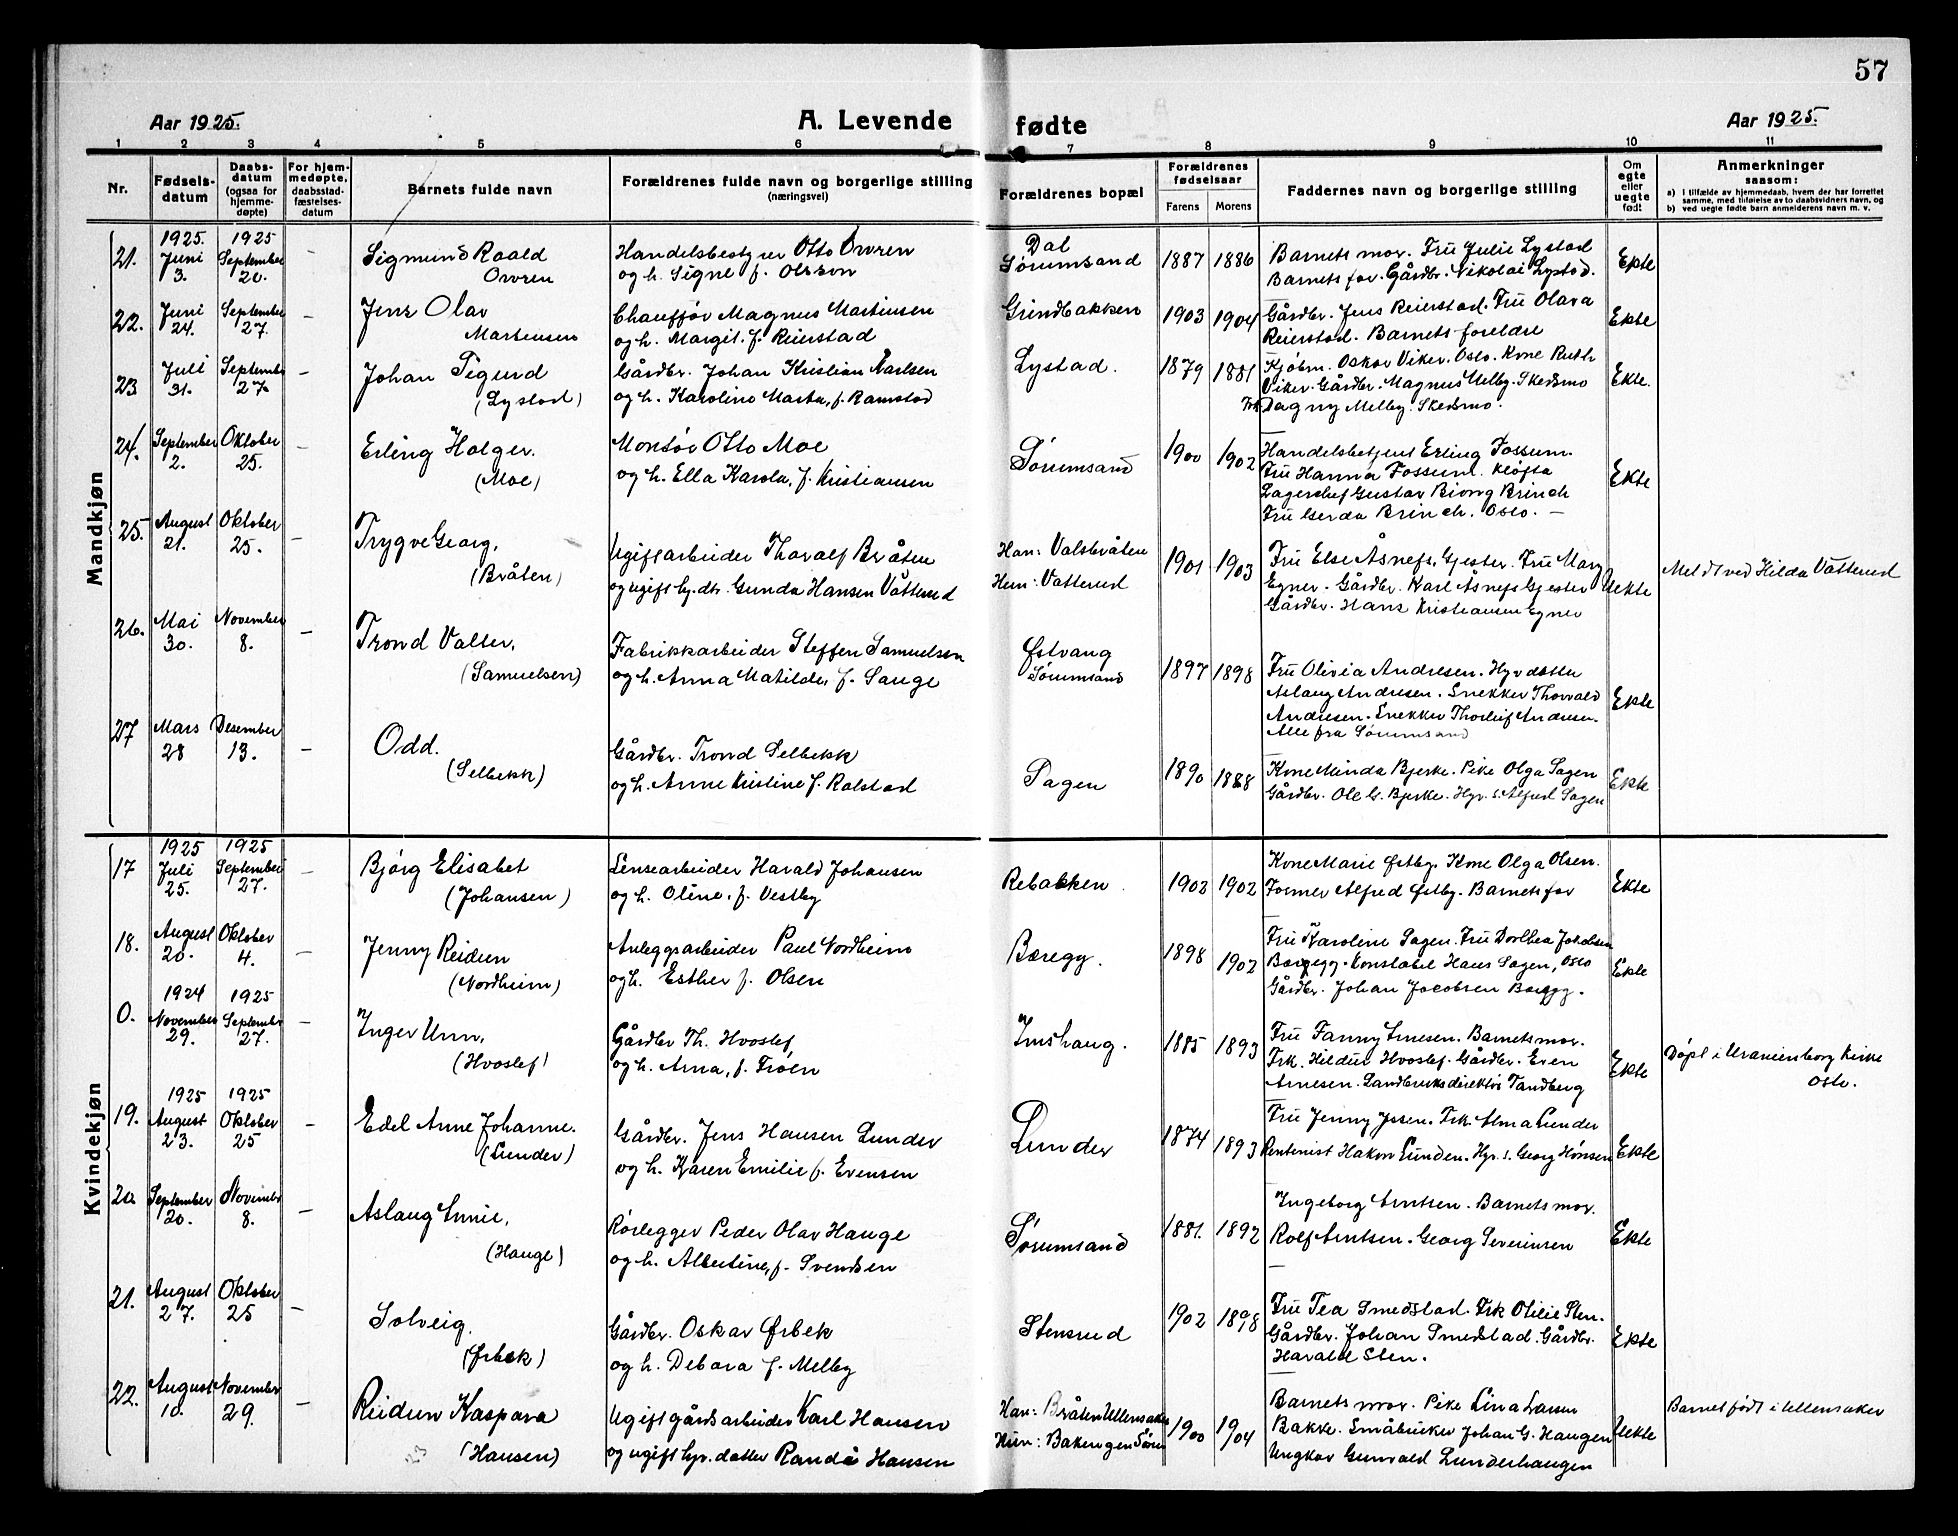 57
Aar 1925.
A. Levende fødte
Aar 1925.
1 2 3 4 5 6 7 8 9 10 11
Nr.
Fødsels-
datum
Daabs-
datum
(ogsaa for
hjemme-
døpte)
For hjem-
medøpte,
daabsstad-
fæstelses-
datum
Barnets fulde navn
Forældrenes fulde navn og borgerlige stilling
(næringsvei)
Forældrenes bopæl
Forældrenes
fødselsaar
Farens Morens
Faddernes navn og borgerlige stilling
Om
egte
eller
uegte
født
Anmerkninger
saasom:
a) I tilfælde av hjemmedaab, hvem der har forrettet
samme, med tilføielse av to daabsvidners navn, og
b) ved uegte fødte barn anmelderens navn m. v.
Mandkjøn
21. 1925. Juni 3. 1925 September 20. –
Sigmund Roald
Ovren
Handelsbestyrer Otto Ovren
og h. Signe f. Olsson
Dal
Sørumsand
1887 1886
Barnets mor. Fru Julie Lystad
Barnets far. Gårdbr. Nikolai Lystad.
Ekte
22. Juni 24. September 27. –
Jens Olav
Martensen
Chauffør Magnus Martinsen
og h. Margit, f. Reierstad
Grindbakken
1903 1904
Gårdbr. Jens Reierstad. Fru Olava
Reierstad. Barnets foreldre
Ekte
23 Juli 31. September 27 –
Johan Sigurd
(Lystad)
Gårdbr. Johan Kristian Karlsen
og h. Karoline Marta, f. Ramstad
Lystad.
1879 1881
Kjøbm. Oskar Viker. Oslo. Kone Ruth
Viker. Gårdbr. Magnus Melby. Skedsmo
Frk Dagny Melby. Skedsmo.
Ekte.
24. September 2. Oktober 25. –
Erling Holger.
(Moe)
Montør Otto Moe
og h. Ella Karola, f. Kristiansen
Sørumsand
1900 1902
Handelsbetjent Erling Fossum.
Fru Hanna Fossum. Kløfta
Lagerchef Gustav Bjong Brinch
Fru Gerda Brinch. Oslo. –
Ekte
25. August 21. Oktober 25. –
Trygve Georg,
(Bråten)
Ugift arbeider Thoralf Bråten
og ugift hy. dtr. Gunda Hansen Vatterud
Han: Valsbråten
Hun: Vatterud
1901 1903
Fru Else Åsnefs. Gjester. Fru Mary
Egner. Gårdbr. Karl Åsnefs Gjester
Gårdbr. Hans Kristiansen Egner
Uekte
Meldt ved Hilda Vatterud
26. Mai 30. November 8. –
Trond Valter,
(Samuelsen)
Fabrikkarbeider Steffen Samuelsen
og h. Anna Matilde, f. Sauge
Østvang
Sørumsand
1897 1898
Fru Olivia Andresen. Hyrdatter
Aslaug Andresen. Snekker Thorvald
Andresen. Snekker Thorleif Andresen.
Alle fra Sørumsand
Ekte
27 Mars 28 Desember 13. –
Odd.
(Selbekk)
Gårdbr. Trond Selbekk
og h. Anne Kristine f. Rolstad
Sagen
1890 1888
Kone Minda Bjerke. Pike Olga Sagen
Gårdbr. Ole G. Bjerke. Hyr. s. Alfred Sagen
Ekte
Kvindekjøn
17 1925 Juli 25. 1925 September 27. –
Bjørg Elisabet
(Johansen)
Lensearbeider Harald Johansen
og h. Oline, f. Vestby
Rebakken.
1902 1902
Kone Marie Østby. Kone Olga Olsen.
Former Alfred Østby. Barnets far
Ekte
18. August 20. Oktober 4. –
Jenny Reidun
(Nordheim)
Anleggsarbeider Paul Nordheim
og h. Esther f. Olsen
Bæregg.
1898 1902
Fru Karoline Sagen. Fru Dorthea Jakobsen
Bæregg. Konstabel Hans Sagen, Oslo
Gårdbr. Johan Jacobsen Bæregg.
Ekte
0. 1924 November 29. 1925 September 27. –
Inger Unn,
(Hvoslef)
Gårdbr Th. Hvoslef
og h. Anna, f. Frøen
Imshaug.
1885 1893
Fru Fanny Arnesen. Barnets mor.
Frk. Hildur Hvoslef. Gårdbr. Even
Arnesen. Landbruksdirektør Tandberg
Ekte
Døpt i Uranienborg Kirke
Oslo.
19. 1925 August 23. 1925 Oktober 25 –
Edel Anne Johanne.
(Lunder)
Gårdbr. Jens Hansen Lunder
og h. Karen Emilie f. Evensen
Lunder
1874 1893
Fru Jenny Jssen. Frk. Alma Lunder
Rentenist Hakon Lunden. Hyr. s. Georg Hønsen
Ekte
20 September 20. November 8. –
Aslaug Annie,
(Hauge)
Rørlegger Peder Olav Hauge
og h. Albertine, f. Svendsen
Sørumsand
1881. 1892
Ingeborg Arntsen. Barnets mor.
Rolf Arntsen. Georg Severinsen
Ekte
21. August 27. Oktober 25 –
Solveig.
(Ørbek)
Gårdbr. Oskar Ørbek
og h. Debora f. Melby
Stensrud
1902 1898
Fru Tea Smedstad. Frk Otilie Sten.
Gårdbr. Johan Smedstad. Gårdbr.
Harald Sten.
Ekte
22. August 10. November 29. –
Reidun Kaspara
(Hansen)
Ugift gårdsarbeider Karl Hansen
og ugift hyr. datter Randi Hansen
Han: Bråten Ullensaker
Hun: Bakengen Sørum
1900 1904
Barnets mor. Pike Lina Larsen
Bakke. Småbruker Johan G. Haugen
Ungkar Gunvald Lunderhaugen
Uekte
Barnet født i Ullensaker